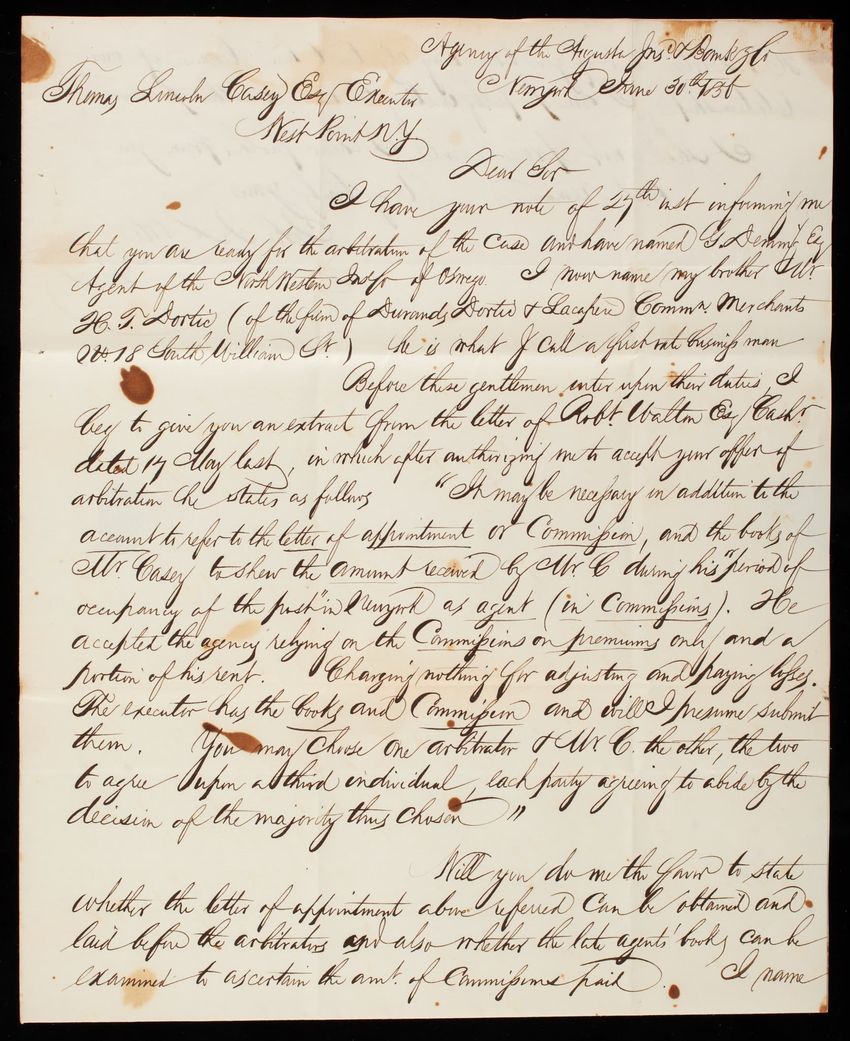 Agency of the Augusta Insce & Bankg Co
Thomas Lincoln Casey Esq Executor
New York June 30th /56
West Point N.Y
Dear Sir
I have your note of 27th inst informing me
that you are ready for the arbitration of the case and have named G. Deming Esq
Agent of the North Western Ins Co of Oswego. I now name my brother Mr
H. T. Dortic (of the firm of Durands, Dortic & Lacapere Commn. Merchants
No. 18 South William St.) he is what I call a first rate business man
Before these gentlemen enter upon their duties, I
beg to give you an extract from the letter of Robt. Walton Esq Cashr.
dated 17 May last, in which after authorizing me to accept your offer of
arbitration he states as follows "It may be necessary in addition to the
account to refer to the letter of appointment or Commission, and the books of
Mr. Casey to shew the amount received by Mr. C during his "period of
occupancy of the post" in New york as agent (in Commissions). He
accepted the agency relying on the Commissions on premiums only and a
portion of his rent. Charging nothing for adjusting and paying losses.
The executor has the books and Commission and will I presume submit
them. You may choose one arbitrator & Mr C. the other, the two
to agree upon a third individual, each party agreeing to abide by the
decision of the majority thus chosen"
Will you do me the favor to state
whether the letter of appointment above referred can be obtained and
laid before the arbitrators and also whether the late agents' books can be
examined to ascertain the amt. of Commissions paid. I name